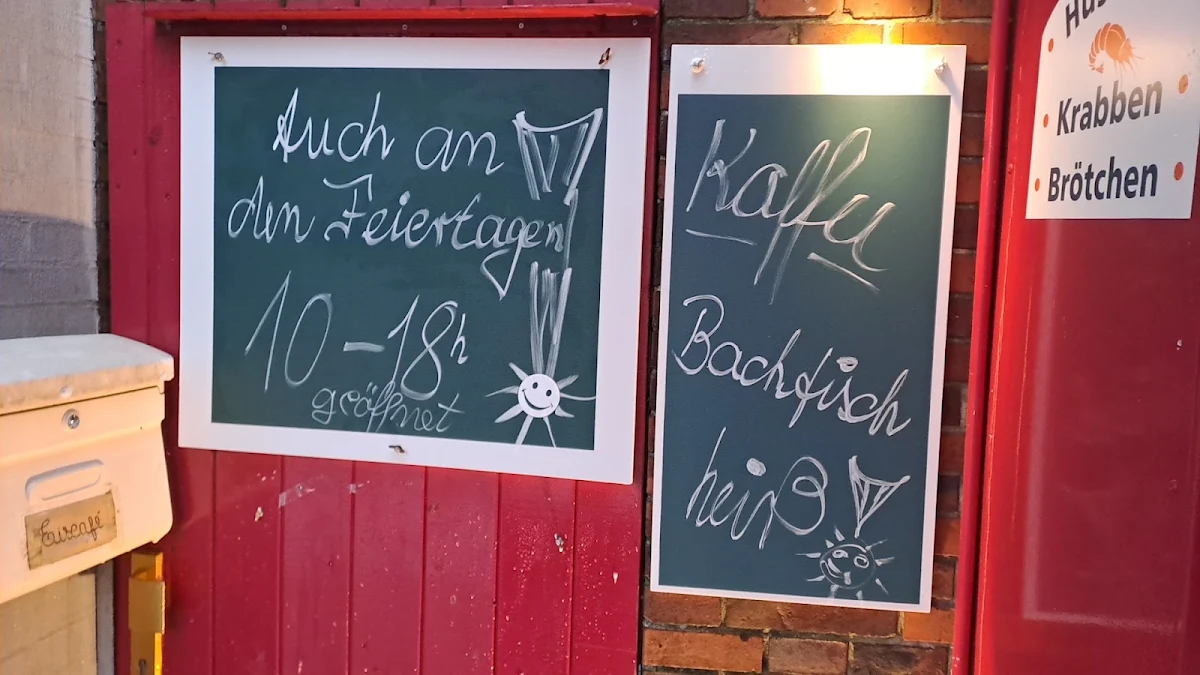 Auch an
den Feiertagen
10-18h
geöffnet!
Kaffee
Bachfisch
heiß!
Krabben
Brötchen
Eiscafé